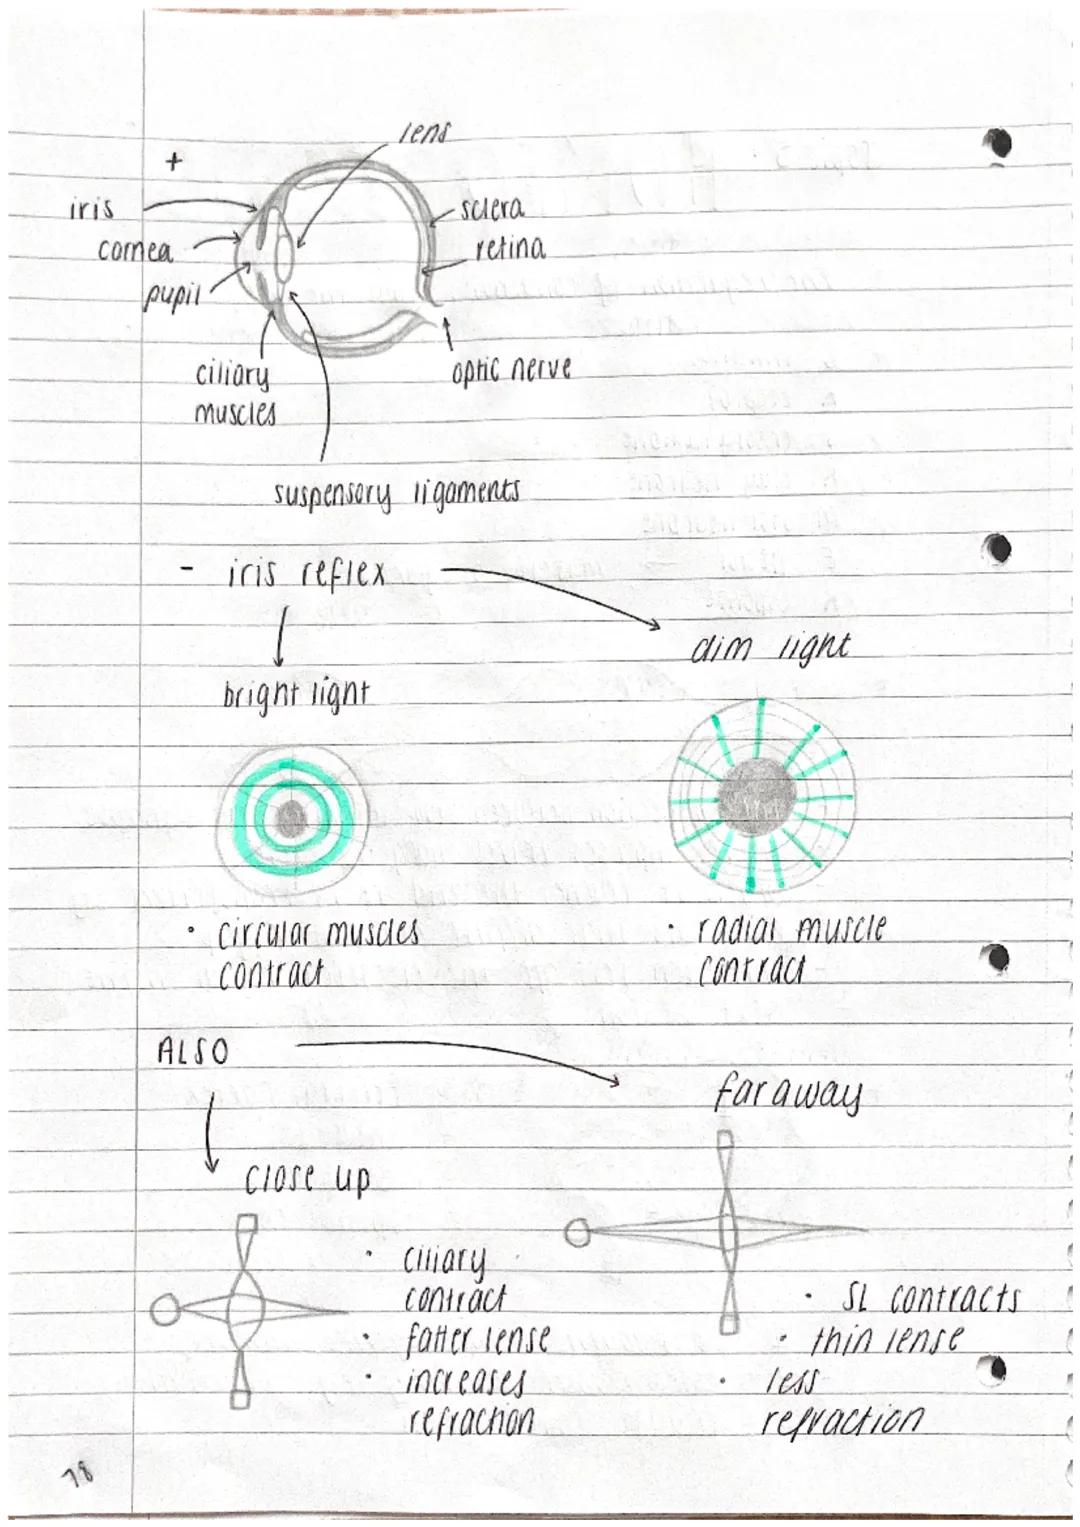 lens
+
iris
sclera
cornea
retina
pupil
ciliary
muscles
optic nerve
suspensory ligaments
- iris reflex
dim light
bright light
• circular muscles
contract
• radial muscle
contract
ALSO
far away
close up
• ciliary
contract
• fatter lense
• increases
refraction
• SL contracts
• thin lense
• less
refraction
78